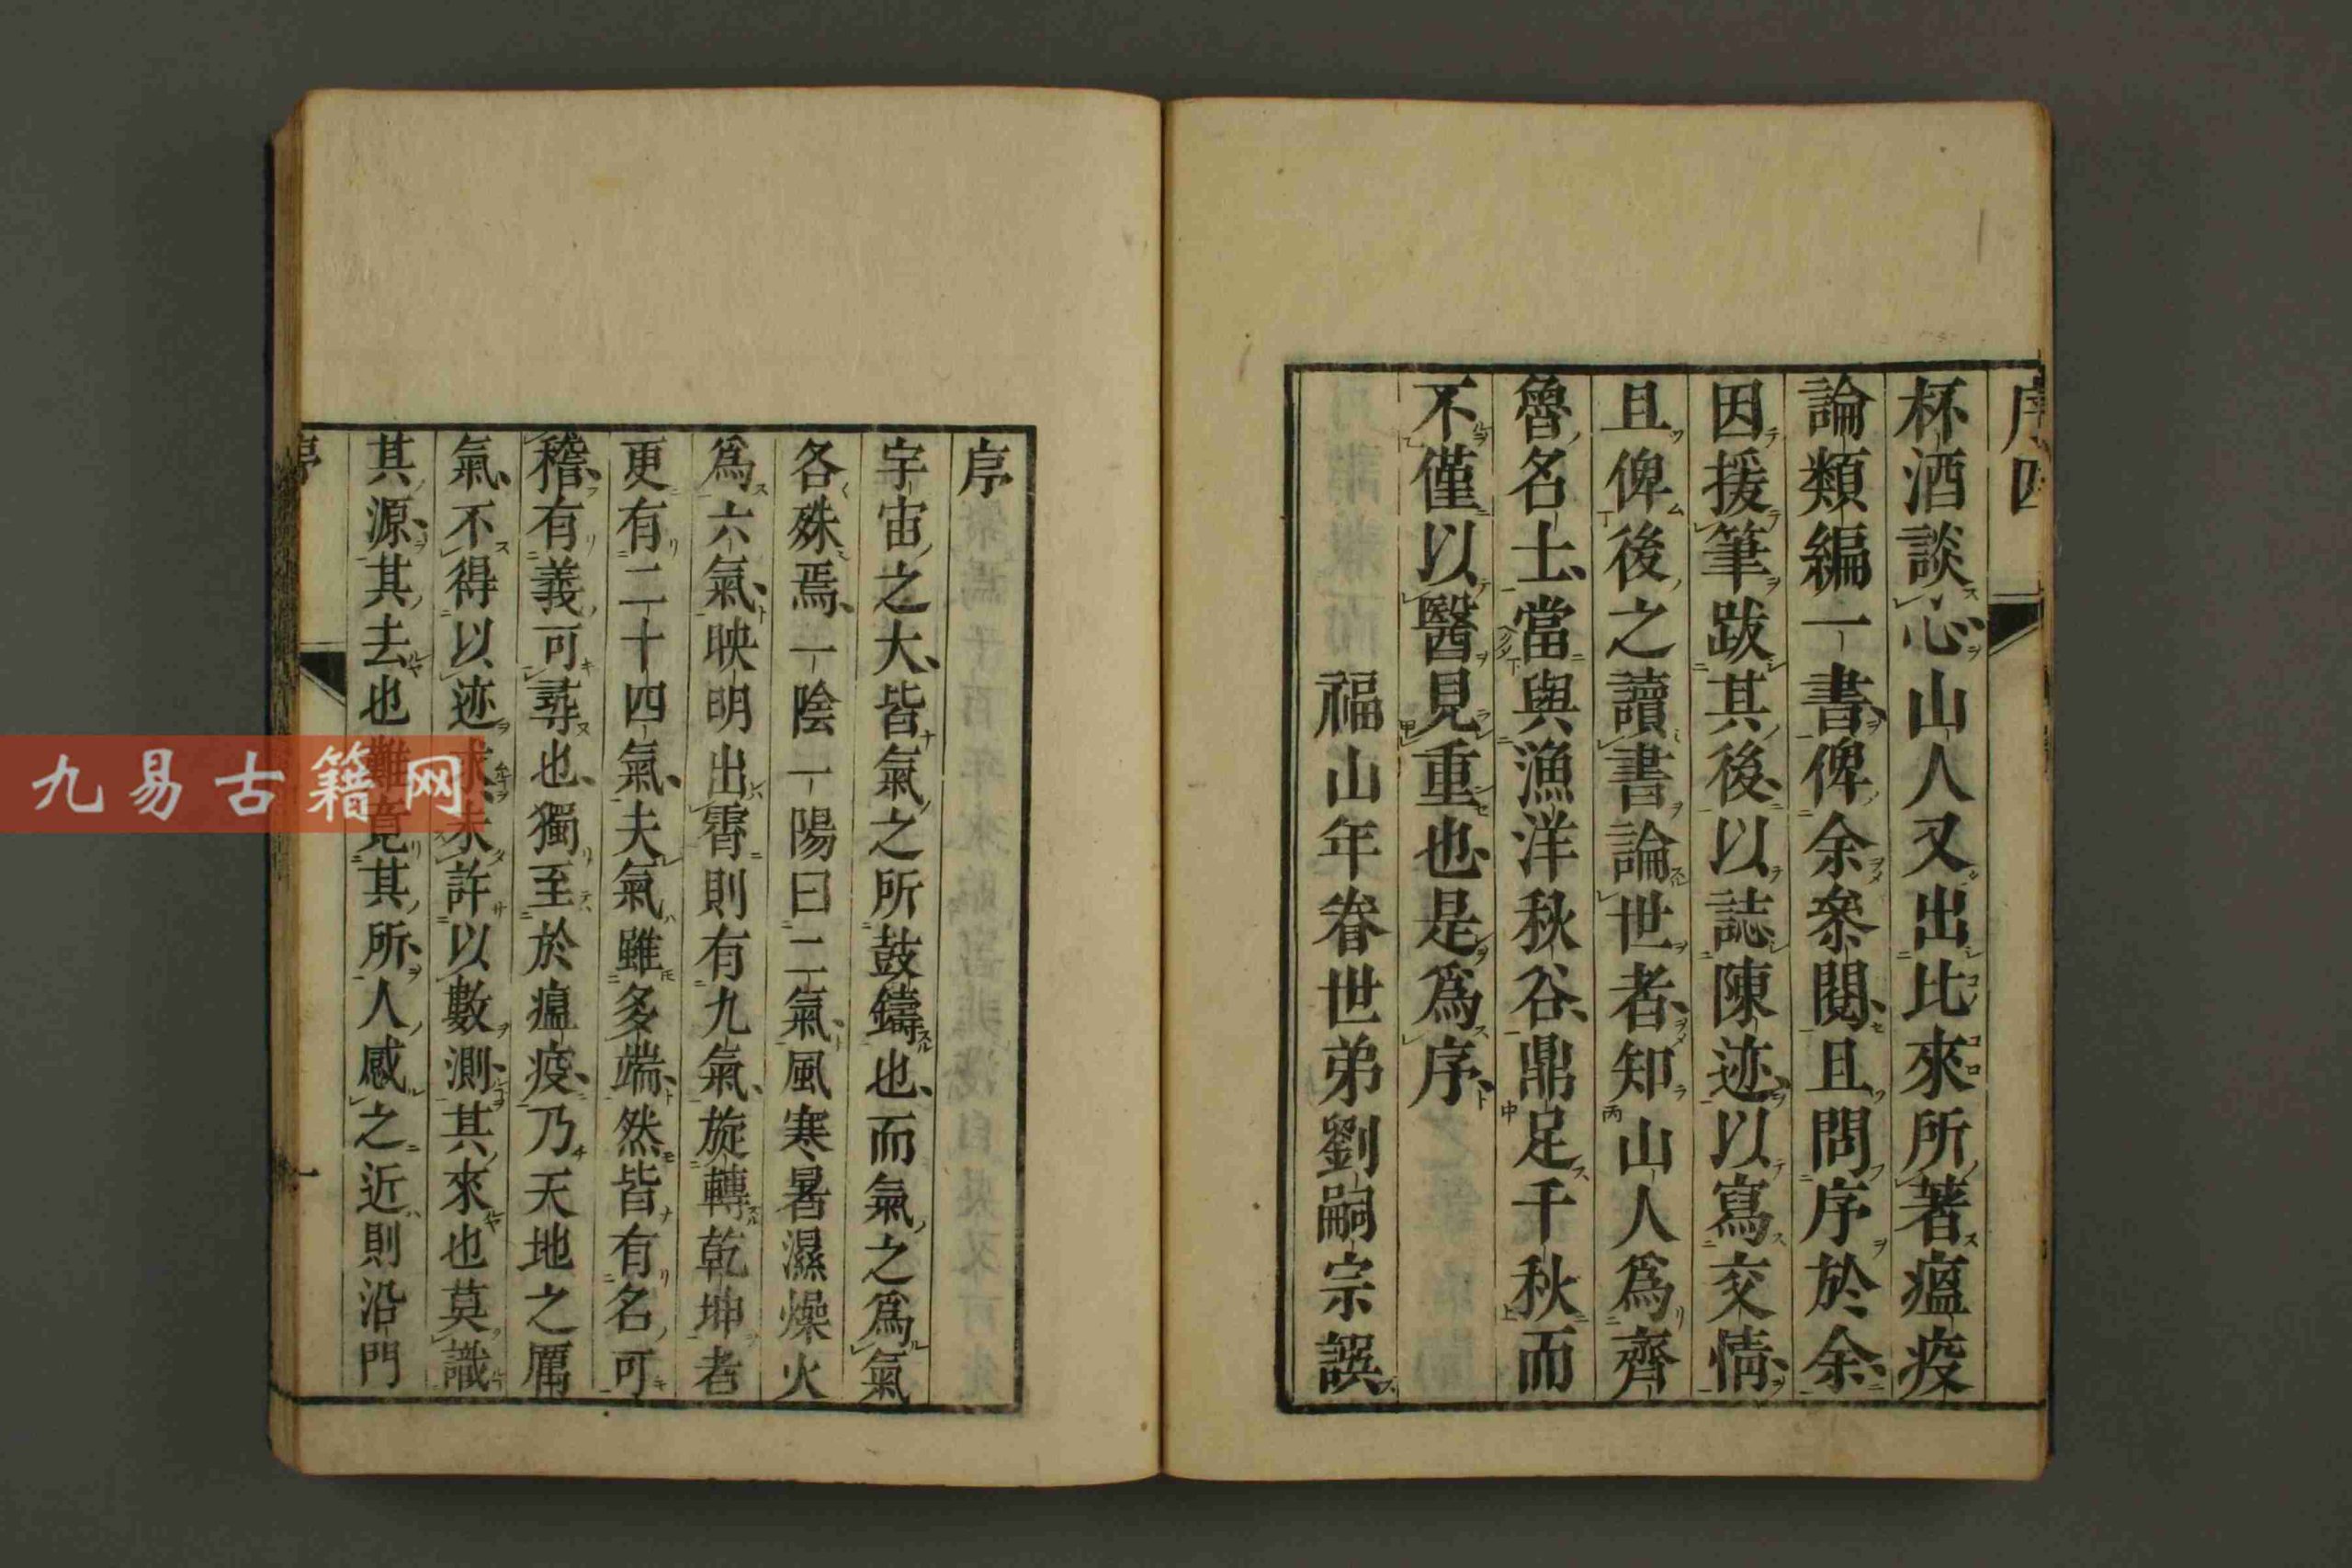 序四
杯酒談心山人又出比來所著瘟疫
論類編一書俾余叅閱且問序於余
因援筆跋其後以誌陳迹以寫交情
且俾後之讀書論世者知山人爲齊
魯名士當與漁洋秋谷鼎足千秋而
不僅以醫見重也是爲序
福山年眷世弟劉嗣宗誤
序
宇宙之大皆氣之所鼓鑄也而氣之爲氣
各殊焉一陰一陽曰二氣風寒暑濕燥火
爲六氣映明出霄則有九氣旋轉乾坤者
更有二十四氣夫氣雖多端然皆有名可
稽有義可尋也獨至於瘟疫乃天地之厲
氣不得以迹求未許以數測其來也莫識
其源其去也難竟其所人感之近則沿門
序
一
九易古籍网